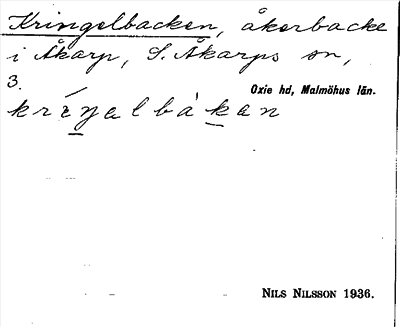 Kringelbacken, åkerbacke
i Åkarp, S. Åkarps sn,
3.
Oxie hd, Malmöhus län.
kríŋalbàkan
NILS NILSSON 1936.